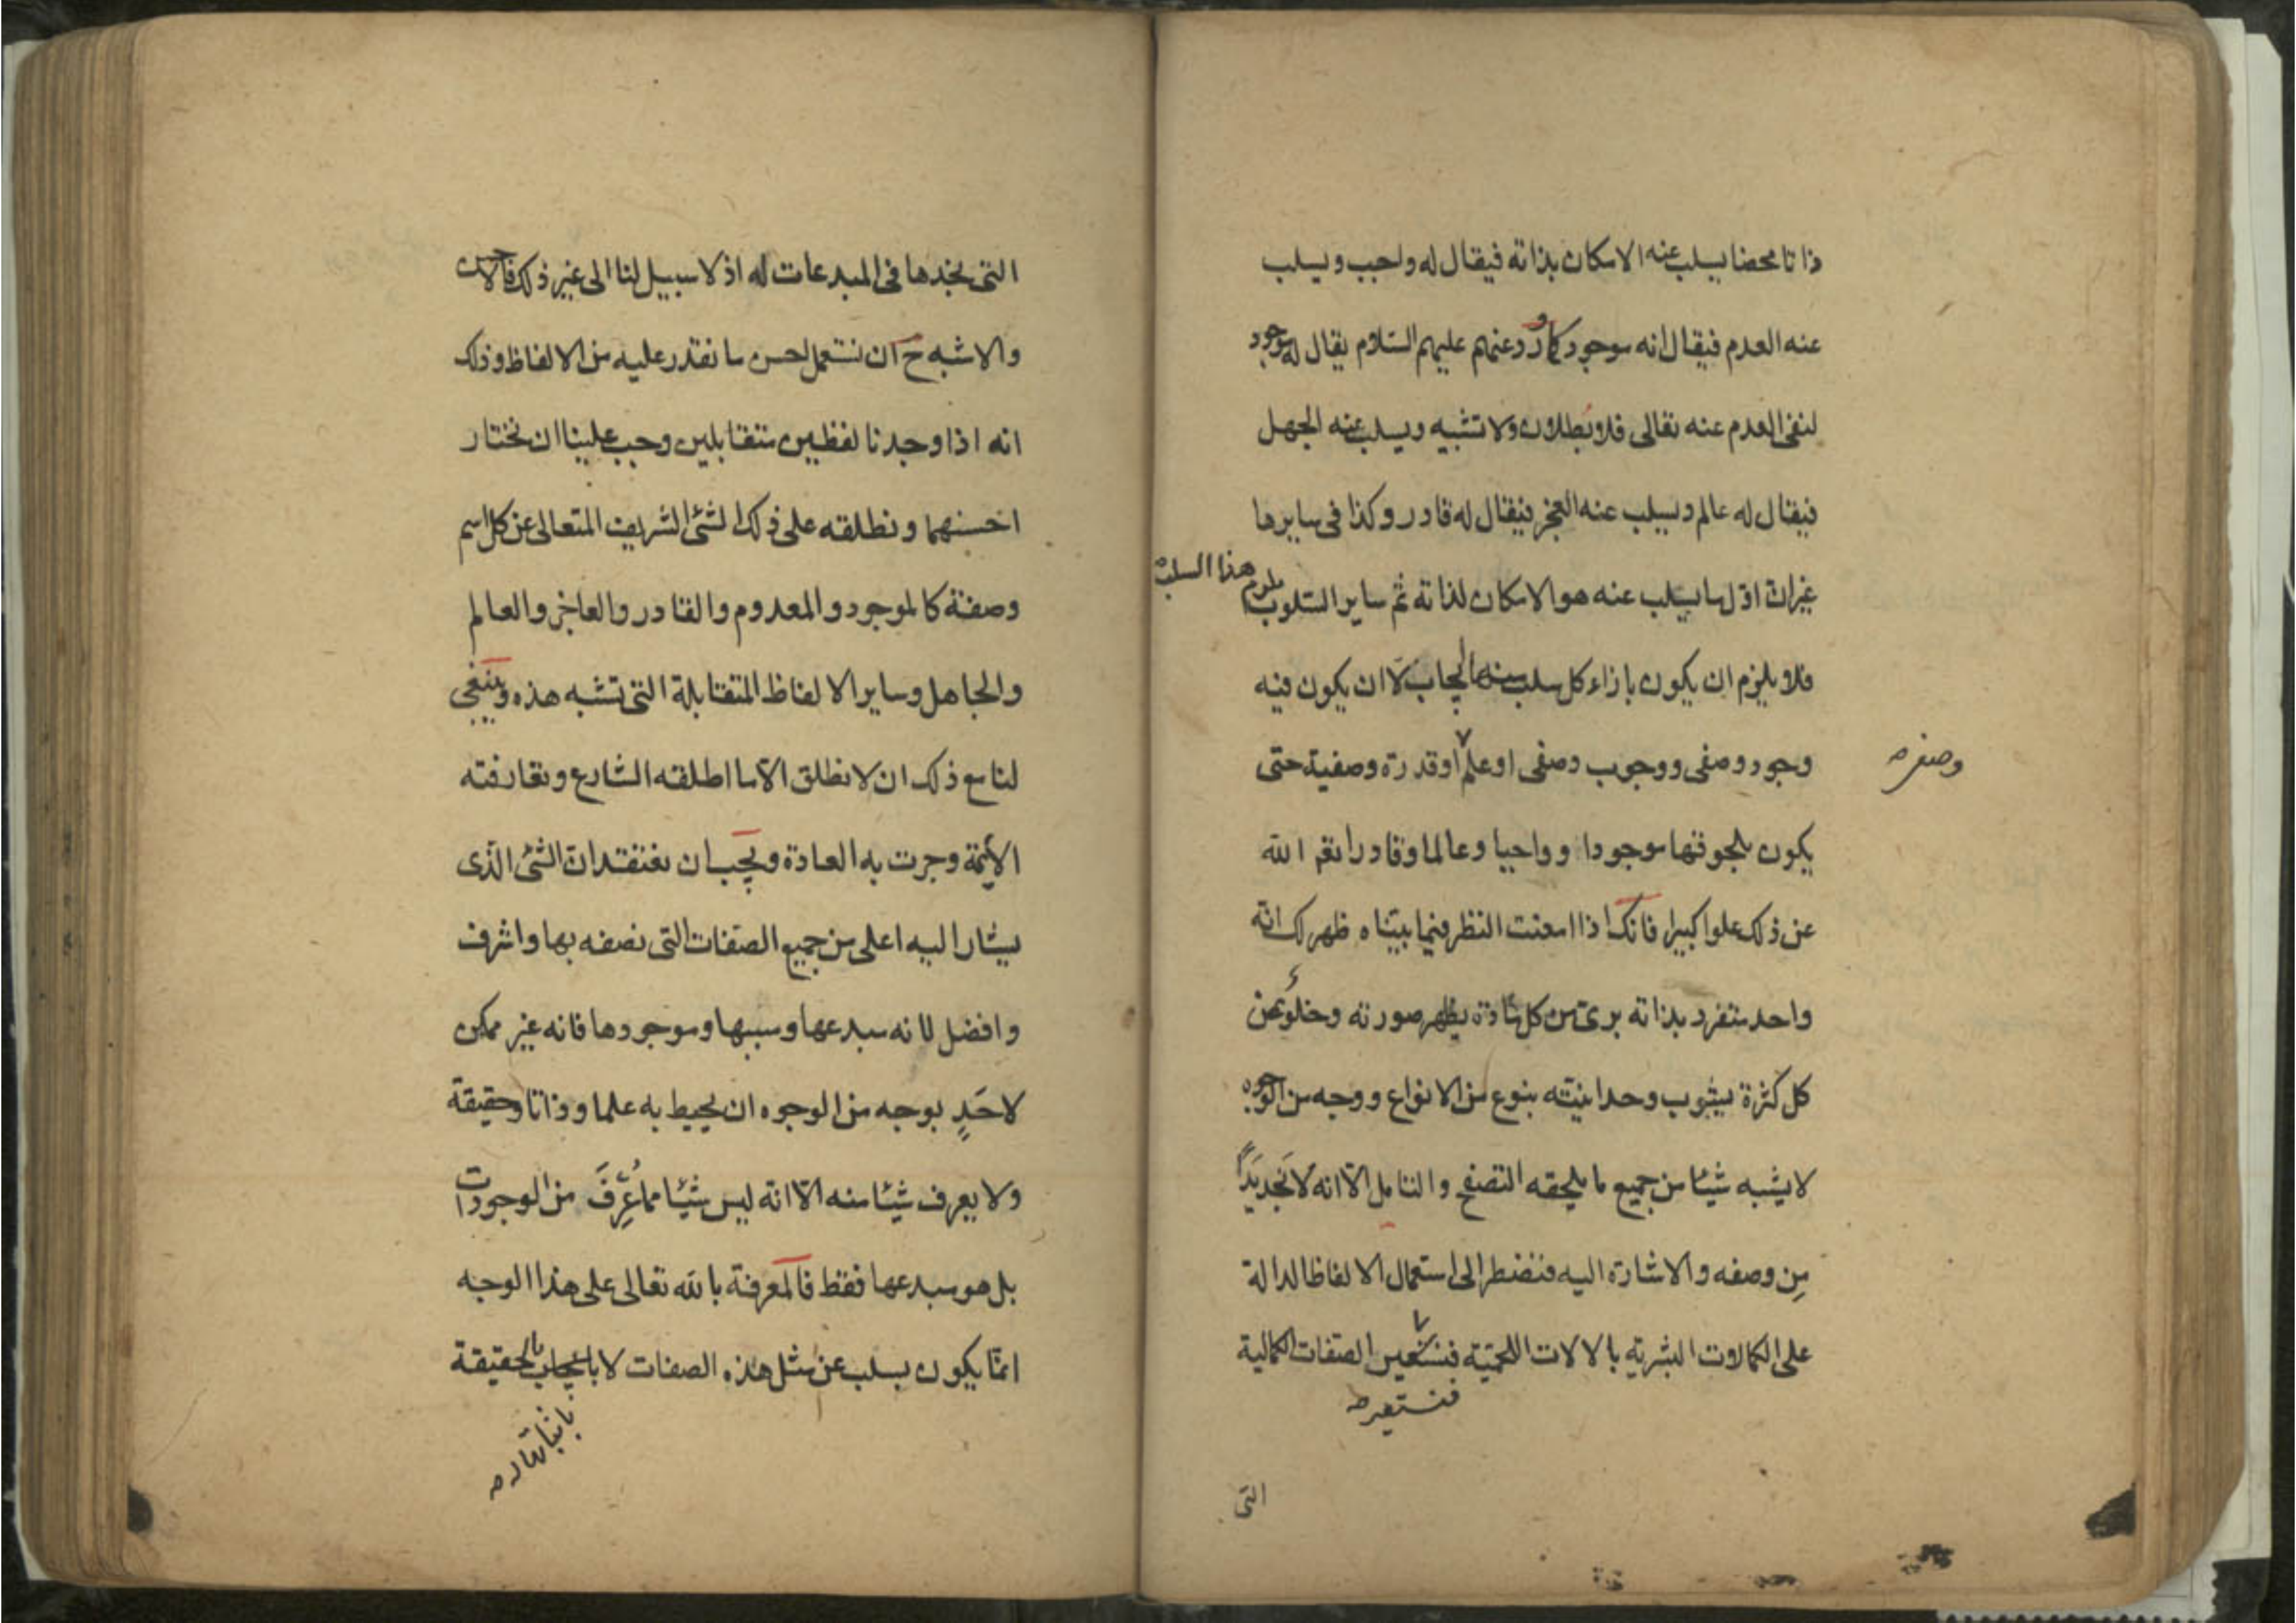 ذاتا محضا يسلب عنه الامكان بذاته فيقال له واجب ويسلب
عنه العدم فيقال انه موجود كما ورد عنهم عليهم السّلام يقال له موجود
لنفى العدم عنه تعالى فلا بُطلان ولا تشبيه ويسلب عنه الجهل
فيقال له عالم ويسلب عنه العجز فيقال له قادر وكذا فى سايرها
غير انّ اوّل ما يسلب عنه هو الامكان لذاته ثم ساير السّلوب يلزم هذا السلب
فلا يلزم ان يكون بازاء كل سلب منها ايجاب لا ان يكون فيه
وجود وصفى ووجوب وصفى او علم او قدرة وصفية حتى
وصفى
يكون بلحوقها موجودا وواجبا وعالما وقادرا تعم الله
عن ذلك علوا كبيرا فانك اذا امعنت النظر فيما بيّناه ظهر لك انّه
واحد متفرد بذاته برى من كل مادة يظهر صورته وخلوّ عن
كل كثرة يشوب وحدانيّته بنوع من الانواع ووجه من الوجوه
لا يشبه شيئا من جميع ما يلحقه التصفح والتامل الّا انه لا نجد بَدّاً
مِن وصفه والاشارة اليه فنضطر الى استعمال الالفاظ الدالة
على الكمالات البشرية بالالات اللحميّة فنستعين الصّفات الكمالية
فنستعير
التى
التى نجدها فى المبدعات له اذ لا سبيل لنا الى غير ذلك فالاحسن
والاشبه ح ان نستعمل احسن ما نقدر عليه من الالفاظ وذلك
انه اذا وجدنا لفظين متقابلين وجب علينا ان نختار
احسنهما ونطلقه على ذلك الشئ الشريف المتعالى عن كل اسم
وصفة كالموجود والمعدوم والقادر والعاجز والعالم
والجاهل وساير الالفاظ المتقابلة التى تشبه هذه وينبغى
لنا مع ذلك ان لا نطلق الّا ما اطلقه الشارع وتعارفته
الأئمة وجرت به العادة ويجب ان نعتقد انّ الشئ الّذى
يشار اليه اعلى من جميع الصّفات التى نصفه بها واشرف
وافضل لانه مبدعها وسببها وموجودها فانه غير ممكن
لاحَدٍ بوجه من الوجوه ان يحيط به علما وذاتا وحقيقة
ولا يعرف شيئا منه الّا انّه ليس شيئا مما عُرِفَ من الموجودات
بل هو مبدعها فقط فالمعرفة بالله تعالى على هذا الوجه
انمّا يكون بسلب عن مثل هذه الصفات لا بايجاب بالحقيقة